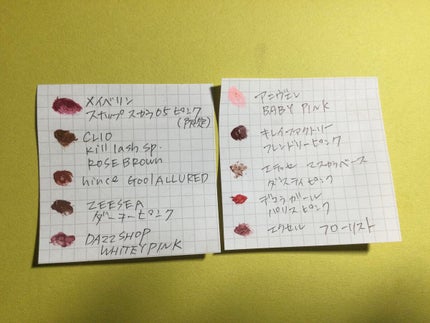 メイベリン
スナップスカラ 05 ピンク
(限定)
CLIO
kill lash sp.
ROSE BROWN
hince G001 ALLURED
ZEESEA
ダーナーピンク
DAZZSHOP
WHITEY PINK
アニヴェン
BABY PINK
キレイファクトリー
フレンドリーピンク
エテュセ マスカラベース
ダスティピンク
デコラガール
パリスピンク
エクセル フローリスト